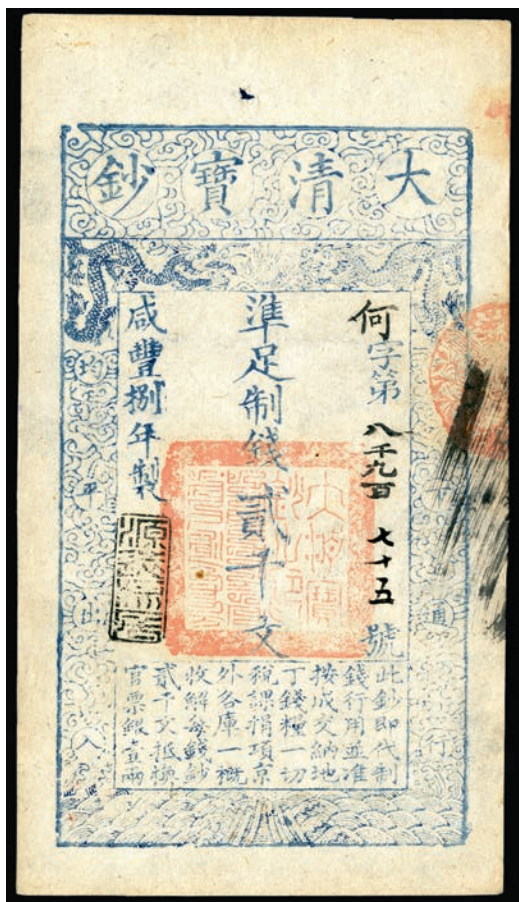 大清寶鈔
何字第八千九百七十五號
準足制錢貳千文
咸豐捌年製
此鈔即代制
錢行用並准
按成交納地
丁錢糧一切
稅課捐項京
外各庫一概
收解每錢鈔
貳千文抵換
官票銀壹兩
均平出入
通行